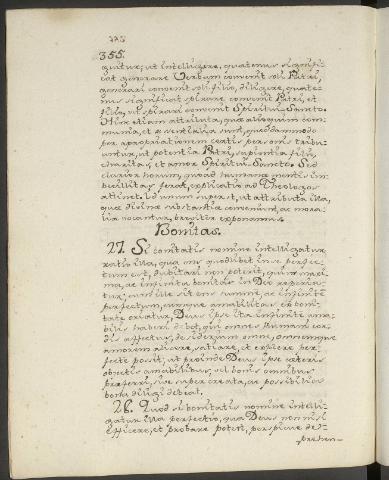 355.
guitur; ut intelligere, quatenus signifi-
cat generare Verbum convenit soli Patri,
generari convenit soli filio, diligere, quate-
nus significat spirare convenit Patri, et
filio, ut spirari convenit Spiritui Sancto.
Hinc etiam attributa, quae alioquin com-
munia, et essentialia sunt, quodammodo
per appropriationem certis personis tribu-
untur, ut potentia Patri, sapientia filio,
charitas, et amor Spiritui Sancto. Sed
clarior horum, quoad humanae mentis im-
becillitas ferat, explicatio ad Theologos
attinet. Id unum superest, ut attributa illa,
quae divinae substantiae conveniunt, ac mora-
lia vocantur, breviter exponamus.
Bonitas.
27. Si bonitatis nomine intelligatur
ratio illa, qua ens quodlibet in se perfec-
tum est, dubitari non poterit, quin maxi-
ma, ac infinita bonitas in Deo reperia-
tur; cum ille sit ens summe, ac infinite
perfectum, cumque amabilitas ex boni-
tate oriatur, Deus ipse ita infinite ama-
bilis haberi debet, qui omnes humani cor-
dis affectus, desiderium omne, omnemque
amorem allicere, satiare, et explere per-
fecte possit, ut proinde Deus ipse caeteris
objectis amabilibus, vel bonis omnibus
praeferri, sive super creata, ac possibilia
bona diligi debeat.
28. Quod si bonitatis nomine intelli-
gatur illa perfectio, qua Deus non nisi
efficere, et probare potest, perspicue de-
prehen-